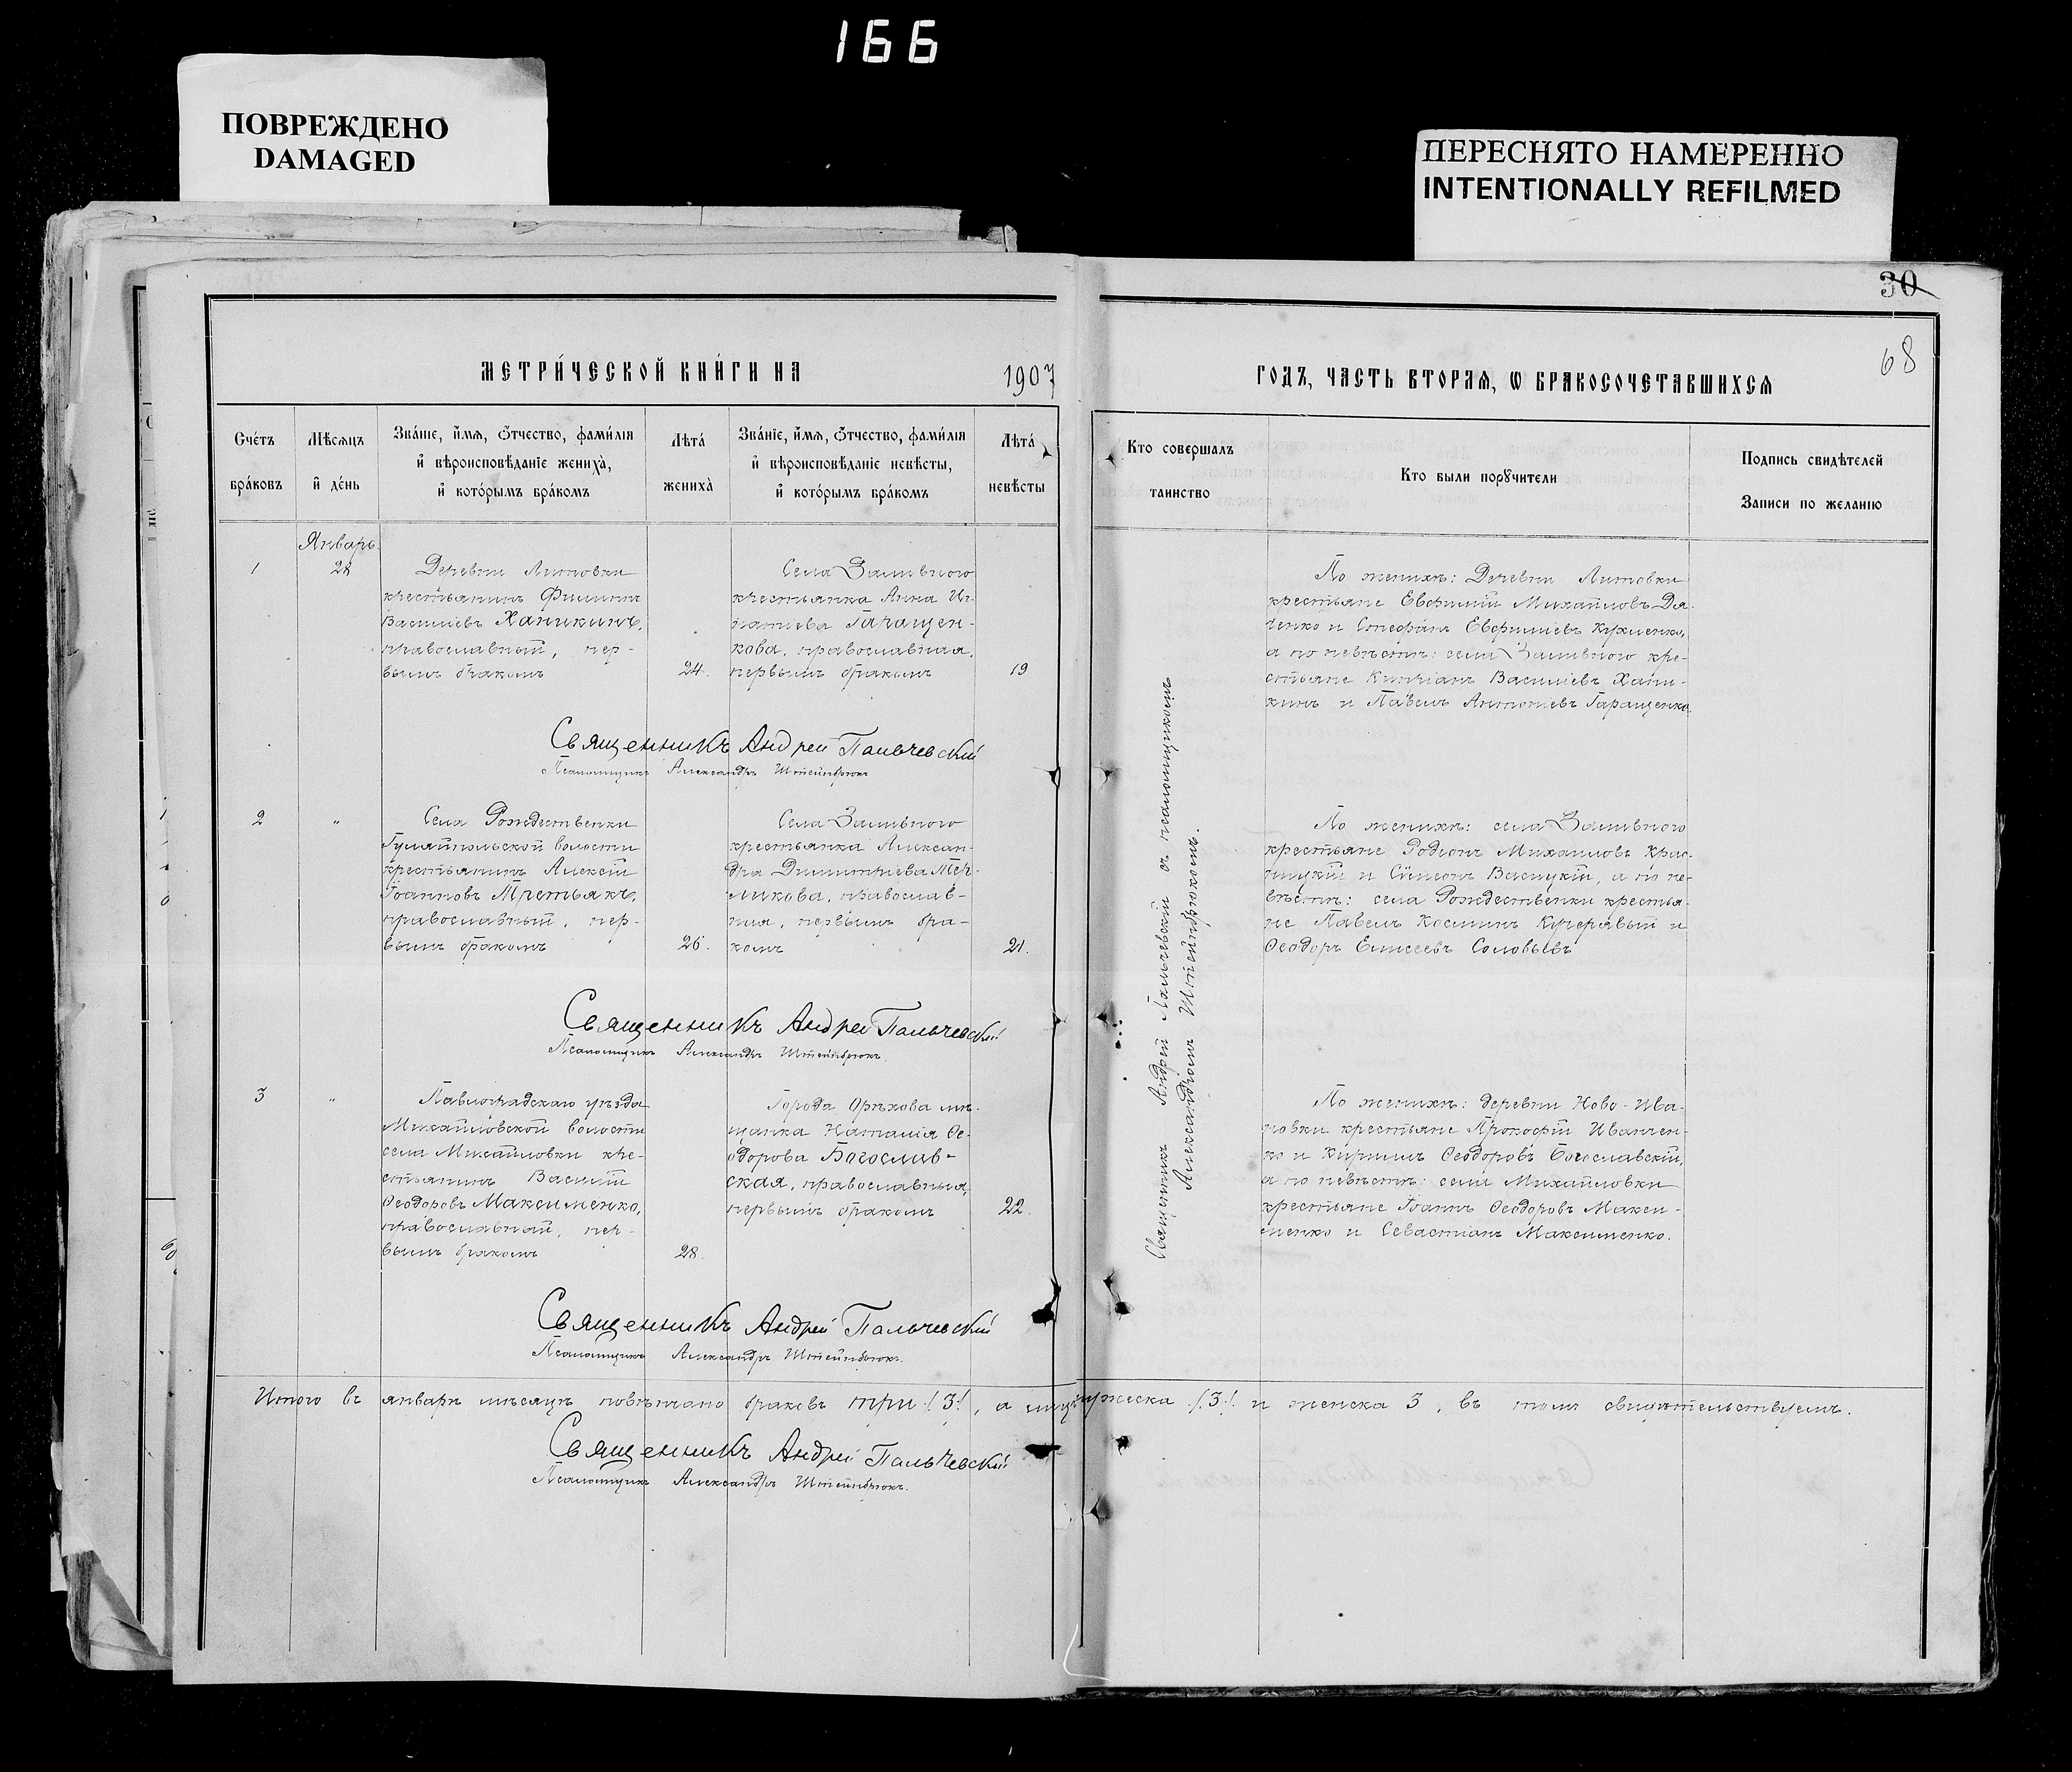 166
ПОВРЕЖДЕНО
DAMAGED
ПЕРЕСНЯТО НАМЕРЕННО
INTENTIONALLY REFILMED
30
68
МЕТРИ́ЧЕСКОЙ КНИ́ГИ НА 1907
ГОДЪ, ЧАСТЬ ВТОРАѦ, Ѡ БРАКОСОЧЕТАВШИХСѦ
Сче́тъ
бра́ковъ
Мѣсѧцъ
и де́нь
Зва́нїе, и҆́мѧ, Ѻ҆́тчество, фами́лїѧ
и҆ вѣроисповѣ́данїе жениха̀,
и҆ кото́рымъ бра́комъ
Лѣта́
жениха̀
Зва́нїе, и҆́мѧ, Ѻ҆́тчество, фами́лїѧ
и҆ вѣроисповѣ́данїе невѣ́сты,
и҆ кото́рымъ бра́комъ
Лѣта́
невѣ́сты
Кто совершалъ
таинство
Кто были порꙋчители
Подпись свидѣтелей
Записи по желанію
1
Январь
28
Деревни Литовки
крестьянинъ Филиппъ
Василіевъ Ханикинъ,
православный, пер-
вымъ бракомъ
24.
Села Заливного
крестьянка Анна Иг-
натіева Гаращен-
кова, православная,
первымъ бракомъ
19
По женихѣ: Деревни Литовки
крестьяне Евфимій Михайловъ Дя-
ченко и Стефанъ Евфиміевъ Кухленко,
а по невѣстѣ: села Заливного кре-
стьяне Кипріанъ Василіевъ Хани-
кинъ и Павелъ Антоніевъ Гаращенко.
Священникъ Андрей Пальчевскій
Псаломщикъ Александръ Штейнбрюкъ
2
"
Села Рождественки
Гуляйпольской волости
крестьянинъ Алексій
Іоанновъ Третьякъ,
православный, пер-
вымъ бракомъ
26.
Села Заливного
крестьянка Алексан-
дра Димитріева Тер-
ликова, православ-
ная, первымъ бра-
комъ
21.
По женихѣ: села Заливного
крестьяне Родіонъ Михаиловъ Крас-
ницкій и Сѵмеонъ Васицкій, а по не-
вѣстѣ: села Рождественки крестья-
не Павелъ Косминъ Кучерявый и
Ѳеодоръ Елисеевъ Соловьевъ
Священникъ Андрей Пальчевскій
Псаломщикъ Александръ Штейнбрюкъ.
3
"
Павлоградскаго уѣзда
Михайловской волости
села Михайловки кре-
стьянинъ Василій
Ѳеодоровъ Максименко,
православный, пер-
вымъ бракомъ
28.
Города Орѣхова мѣ-
щанка Наталія Ѳе-
одорова Богослав-
ская, православная,
первымъ бракомъ
22.
По женихѣ: деревни Ново-Ива-
новки крестьяне Прокофій Иванчен-
ко и Кириллъ Ѳеодоровъ Богославскій,
а по невѣстѣ: села Михайловки
крестьяне Іоаннъ Ѳеодоровъ Макси-
менко и Севастіанъ Максименко.
Священникъ Андрей Пальчевскій
Псаломщикъ Александръ Штейнбрюкъ.
Священникъ Андрей Пальчевскій съ псаломщикомъ
Александромъ Штейнбрюкомъ.
Итого въ январѣ мѣсяцѣ повѣнчано браковъ три /3/, а лицъ мужеска /3/ и женска 3, въ томъ свидѣтельствуемъ.
Священникъ Андрей Пальчевскій
Псаломщикъ Александръ Штейнбрюкъ.